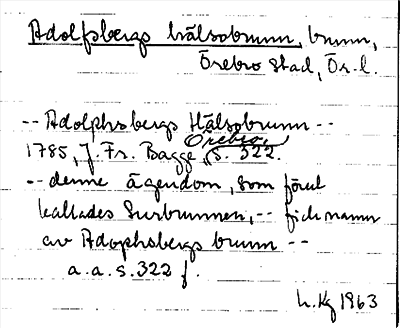 Adolfsbergs hälsobrunn, brunn,
Örebro stad, Ör. l.
-- Adolphsbergs Hälsobrunn --
1785, J. Fr. Bagge, Örebro, s. 322.
-- denne ägendom, som förut
kallades Surbrunnen, -- fick namn
av Adophsbergs brunn --
a. a. s. 322 f.
L. Kg 1963